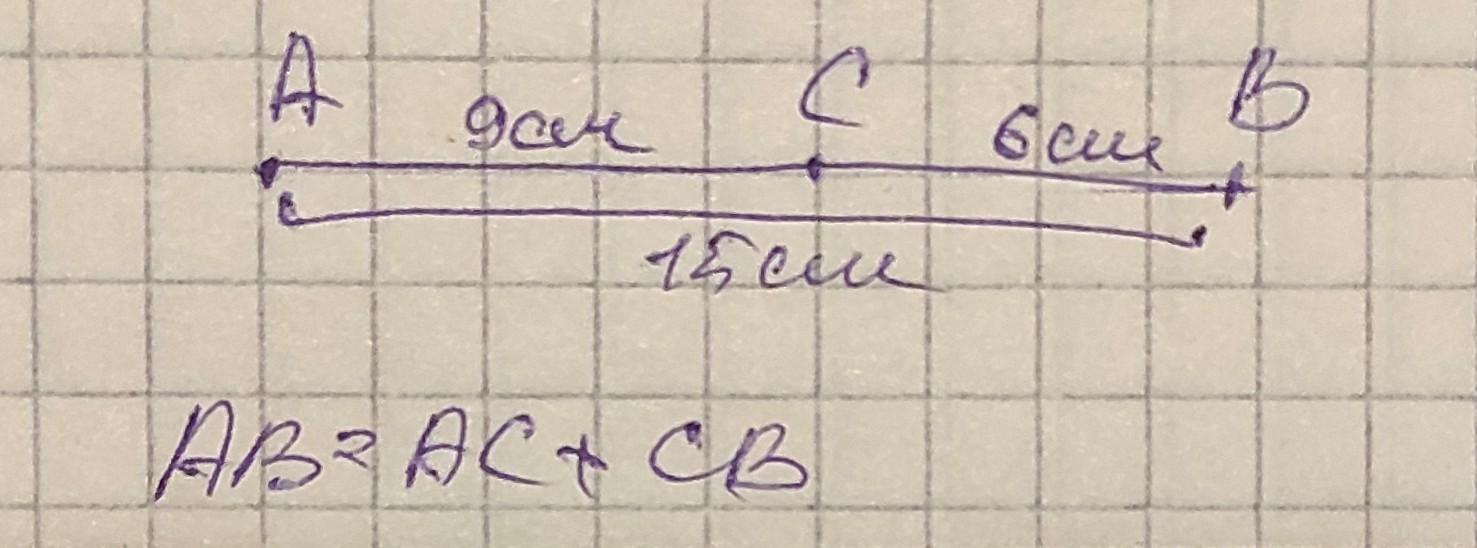 A C B
9см 6см
15см
AB = AC + CB